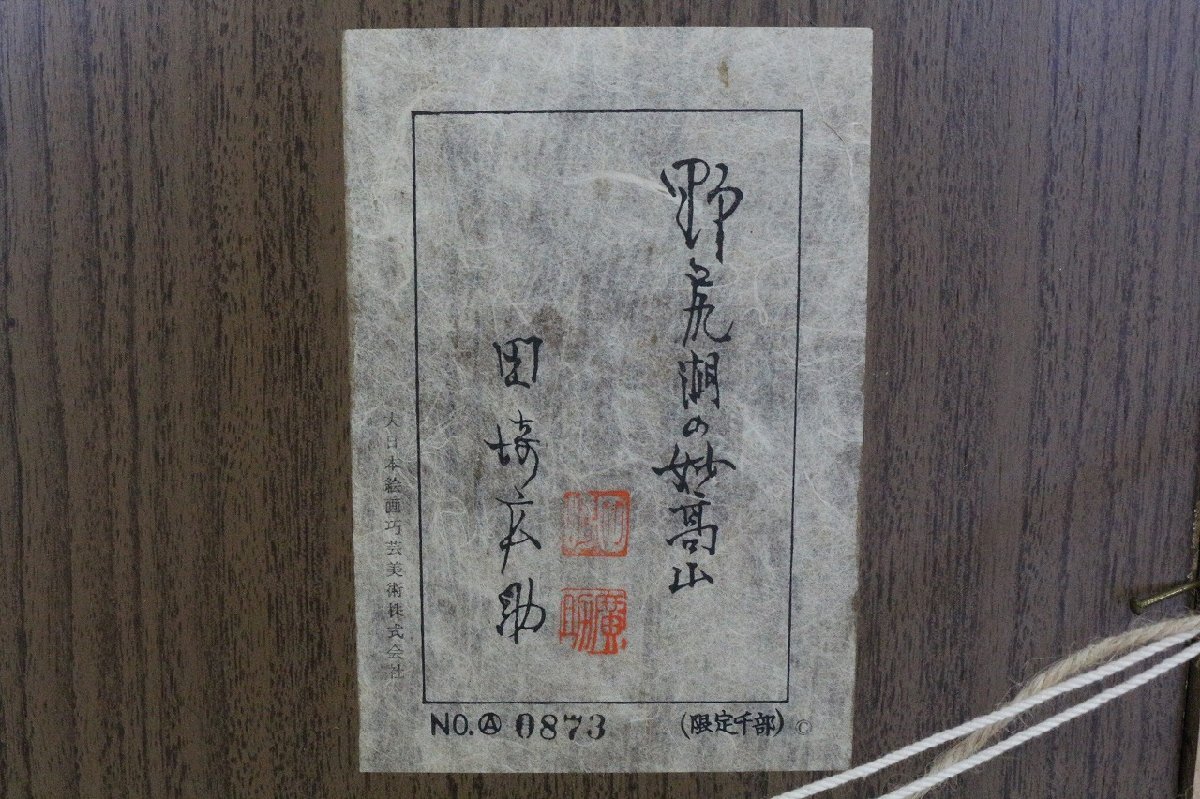 野尻湖の妙高山
田崎広助
田崎
廣助
大日本絵画巧芸美術株式会社
NO.Ⓐ 0873
(限定千部)
©